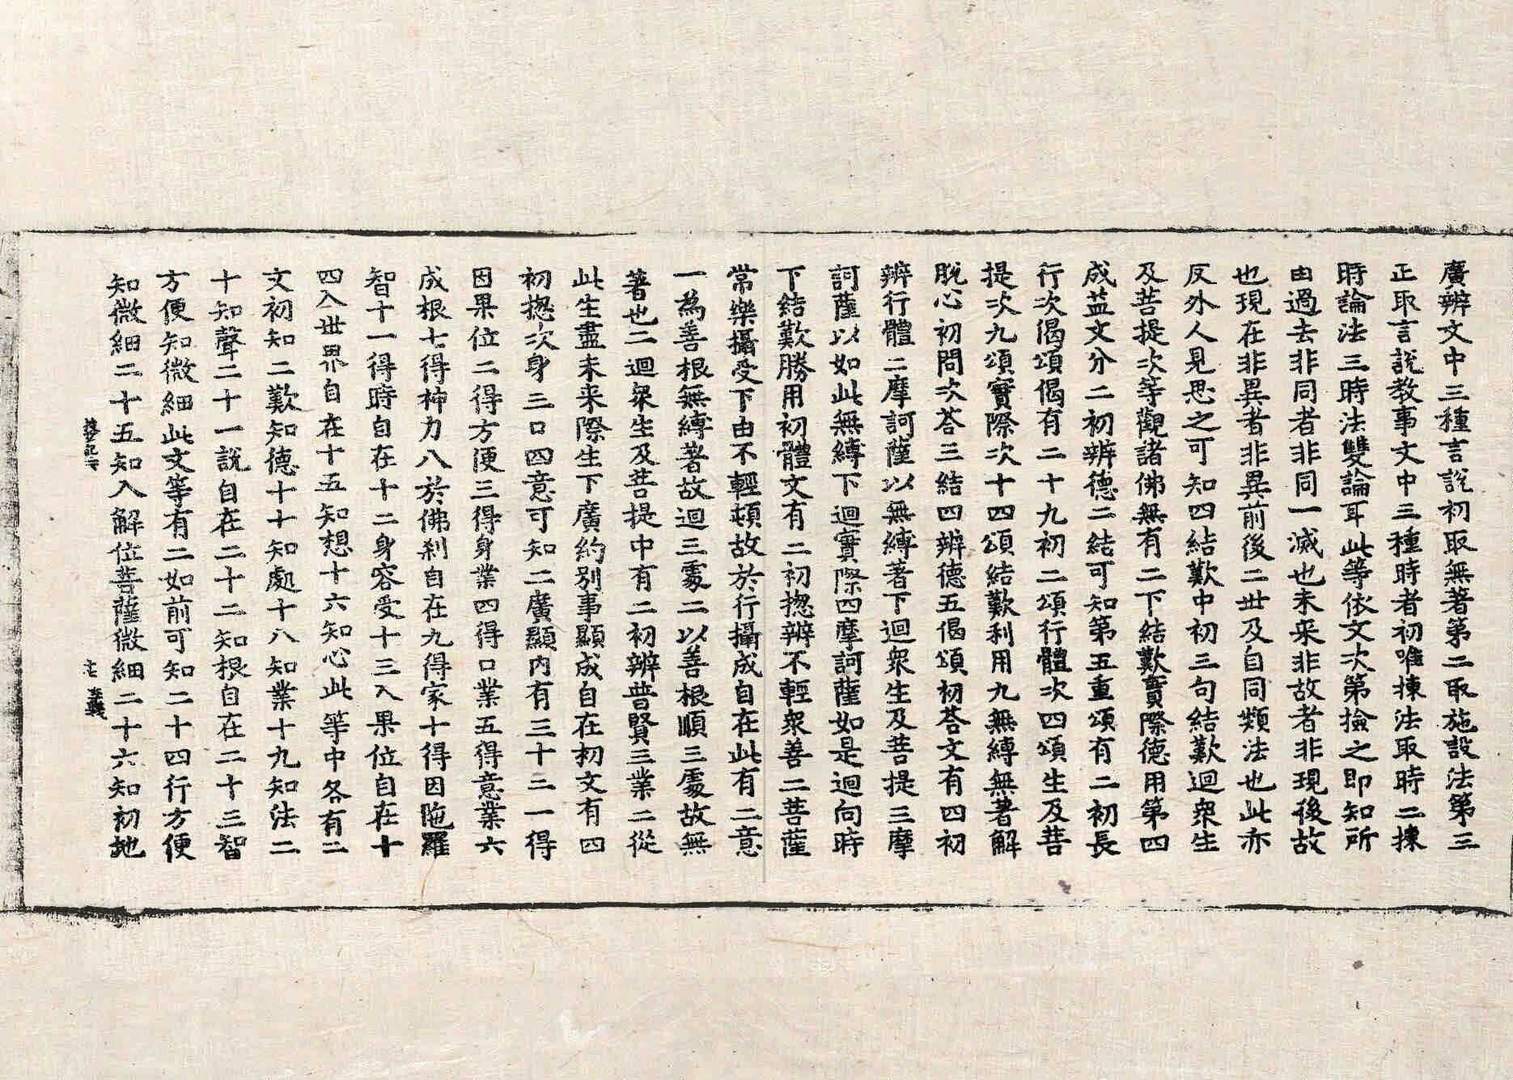 廣辨文中三種言説初取無著第二取施設法第三
正取言説教事文中三種時者初唯揀法取時二揀
時論法三時法雙論耳此等依文次第撿之即知所
由過去非同者非同一滅也未来非故者非現後故
也現在非異者非異前後二世及自同類法也此亦
反外人見思之可知四結歎中初三句結歎迴衆生
及菩提次等觀諸佛無有二下結歎實際德用第四
成益文分二初辨德二結可知第五重頌有二初長
行次偈頌偈有二十九初二頌行體次四頌生及菩
提次九頌實際次十四頌結歎利用九無縛無著解
脫心初問次荅三結四辨德五偈頌初荅文有四初
辨行體二摩訶薩以無縛著下迴衆生及菩提三摩
訶薩以如此無縛下迴實際四摩訶薩如是迴向時
下結歎勝用初體文有二初揔辨不輕衆善二菩薩
常樂攝受下由不輕頓故於行攝成自在此有二意
一為善根無縛著故迴三處二以善根順三處故無
著也二迴衆生及菩提中有二初辨普賢三業二從
此生盡未来際生下廣約别事顯成自在初文有四
初揔次身三口四意可知二廣顯内有三十三一得
因果位二得方便三得身業四得口業五得意業六
成根七得神力八於佛刹自在九得家十得因陁羅
智十一得時自在十二身容受十三入果位自在十
四入世界自在十五知想十六知心此等中各有二
文初知二歎知德十十知處十八知業十九知法二
十知聲二十一說自在二十二知根自在二十三智
方便知微細此文等有二如前可知二十四行方便
知微細二十五知入解位菩薩微細二十六知初地